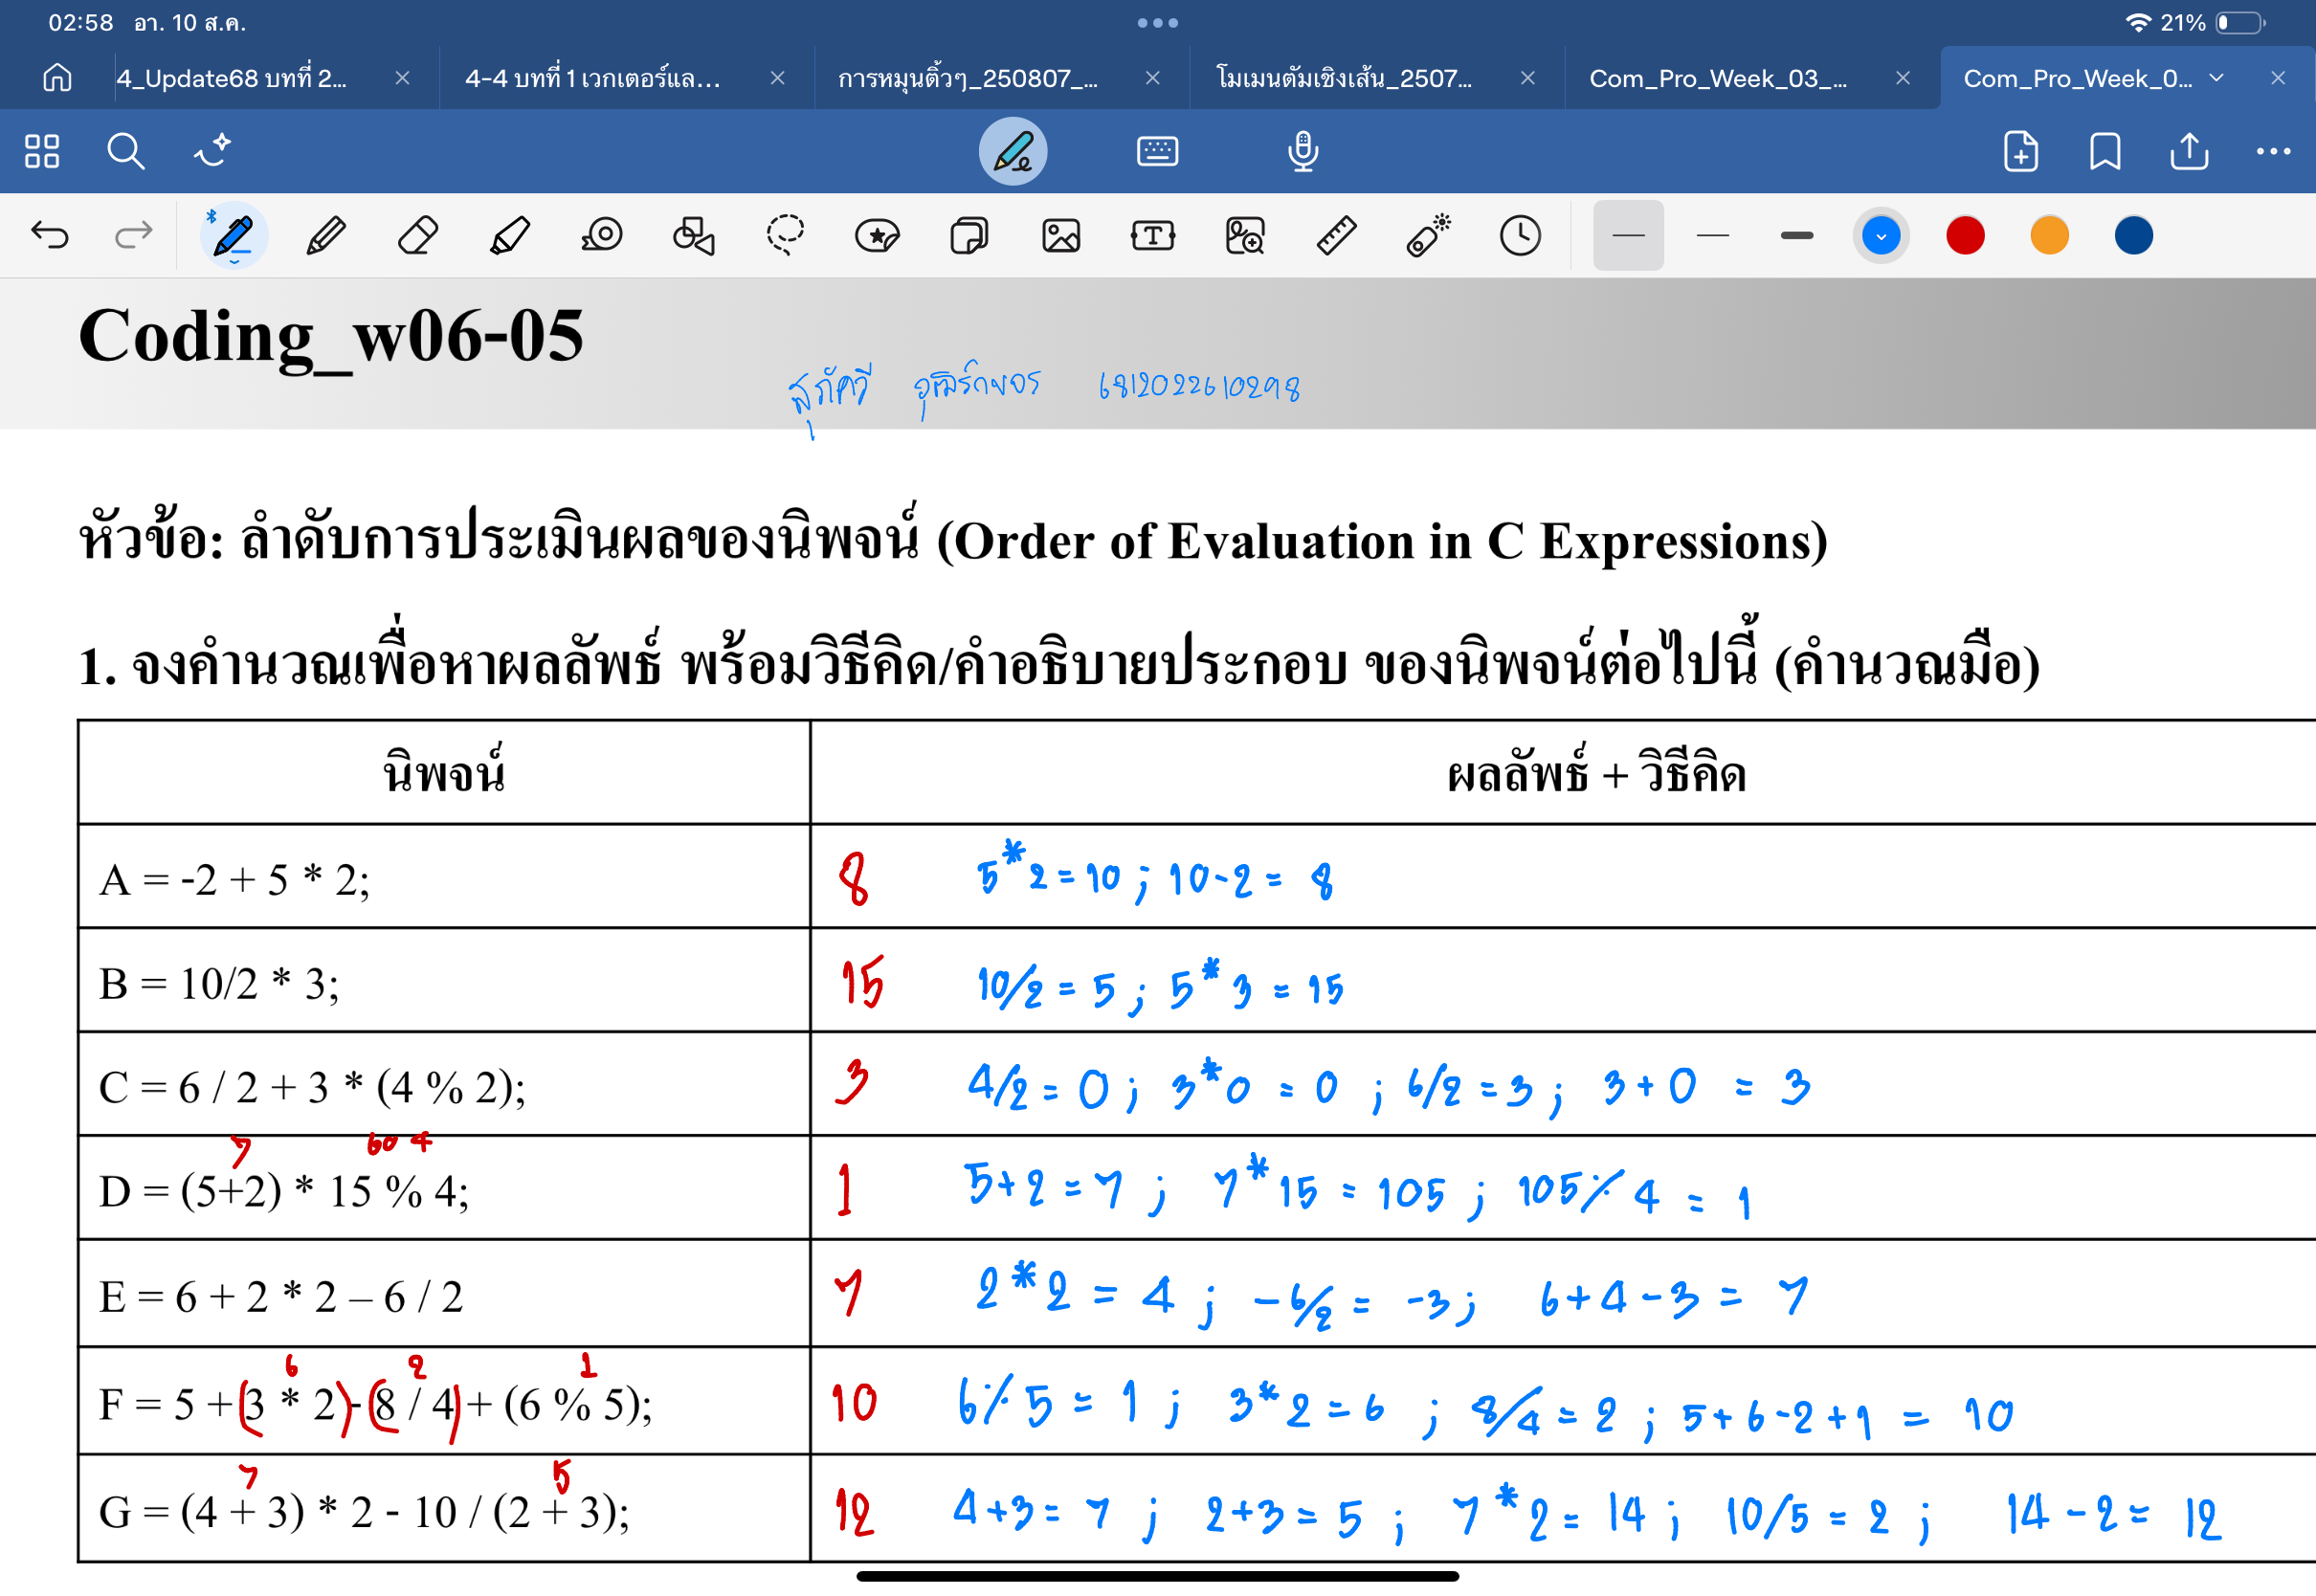 02:58 อา. 10 ส.ค.
21%
4_Update68 บทที่ 2...
4-4 บทที่ 1 เวกเตอร์แล...
การหมุนติ้วๆ_250807_...
โมเมนตัมเชิงเส้น_2507...
Com_Pro_Week_03_...
Com_Pro_Week_0...
Coding_w06-05
6812022610298
หัวข้อ: ลำดับการประเมินผลของนิพจน์ (Order of Evaluation in C Expressions)
1. จงคำนวณเพื่อหาผลลัพธ์ พร้อมวิธีคิด/คำอธิบายประกอบ ของนิพจน์ต่อไปนี้ (คำนวณมือ)
นิพจน์ ผลลัพธ์ + วิธีคิด
A = -2 + 5 * 2; 8 5*2=10 ; 10-2= 8
B = 10/2 * 3; 15 10/2 = 5 ; 5*3 = 15
C = 6 / 2 + 3 * (4 % 2); 3 4/2 = 0 ; 3*0 = 0 ; 6/2 = 3 ; 3+0 = 3
7 60 4
D = (5+2) * 15 % 4; 1 5+2 = 7 ; 7*15 = 105 ; 105 % 4 = 1
E = 6 + 2 * 2 – 6 / 2 7 2*2 = 4 ; -6/2 = -3 ; 6+4-3 = 7
6 2 1
F = 5 + (3 * 2) - (8 / 4) + (6 % 5); 10 6 % 5 = 1 ; 3*2 = 6 ; 8/4 = 2 ; 5+6-2+1 = 10
7 5
G = (4 + 3) * 2 - 10 / (2 + 3); 12 4+3= 7 ; 2+3 = 5 ; 7*2= 14 ; 10/5 = 2 ; 14-2= 12